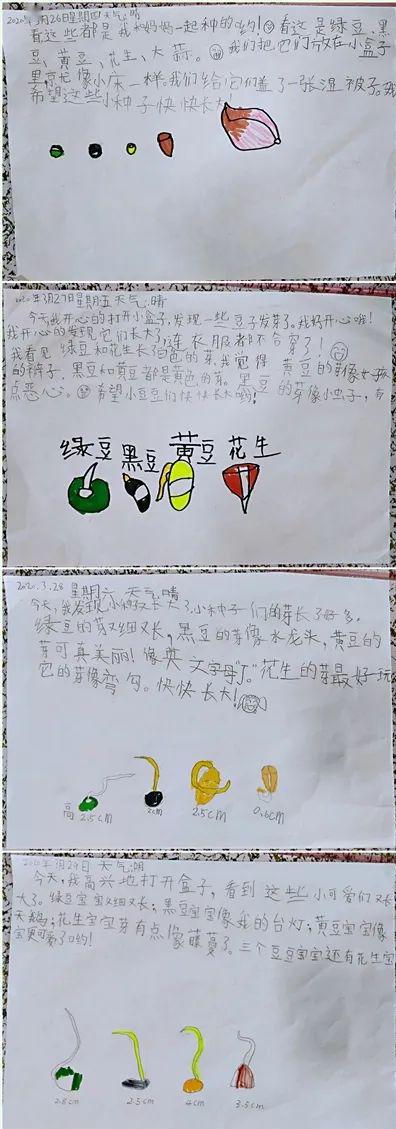 2020年3月26日星期四 天气:晴
看这些都是我和妈妈一起种的哟!看这是绿豆、黑
豆、黄豆、花生、大蒜。我们把它们放在小盒子
里就像小床一样。我们给它们盖了一张湿被子。我
希望这些小种子快快长大
2020年3月27日星期五天气:晴
今天我开心的打开小盒子,发现一些豆子发芽了。我好开心哦!
我开心的发现它们长大了,连衣服都不合穿了!
我看见绿豆和花生长白色的芽,我觉得黄豆的芽像女孩
的裤子,黑豆和黄豆都是黄色的芽。黑豆的芽像小虫子,有
点恶心。希望小豆豆们快快长大哟!
绿豆 黑豆 黄豆 花生
2020.3.28 星期六 天气:晴
今天,我发现小种子又长大了,小种子们的芽长了好多。
绿豆的芽又细又长,黑豆的芽像水龙头,黄豆的
芽可真美丽!像英文字母"J"。花生的芽最好玩
它的芽像弯勾。快快长大!
高 2.5cm 2cm 2.5cm 0.6cm
2020年3月29日 天气:阴
今天,我高兴地打开盒子,看到这些小可爱们又长
大了。绿豆宝宝又细又长;黑豆宝宝像我的台灯;黄豆宝宝像
天鹅;花生宝宝芽有点像藤蔓了。三个豆豆宝宝还有花生宝
宝更可爱了哟!
2.8cm 2.5cm 4cm 3.5cm